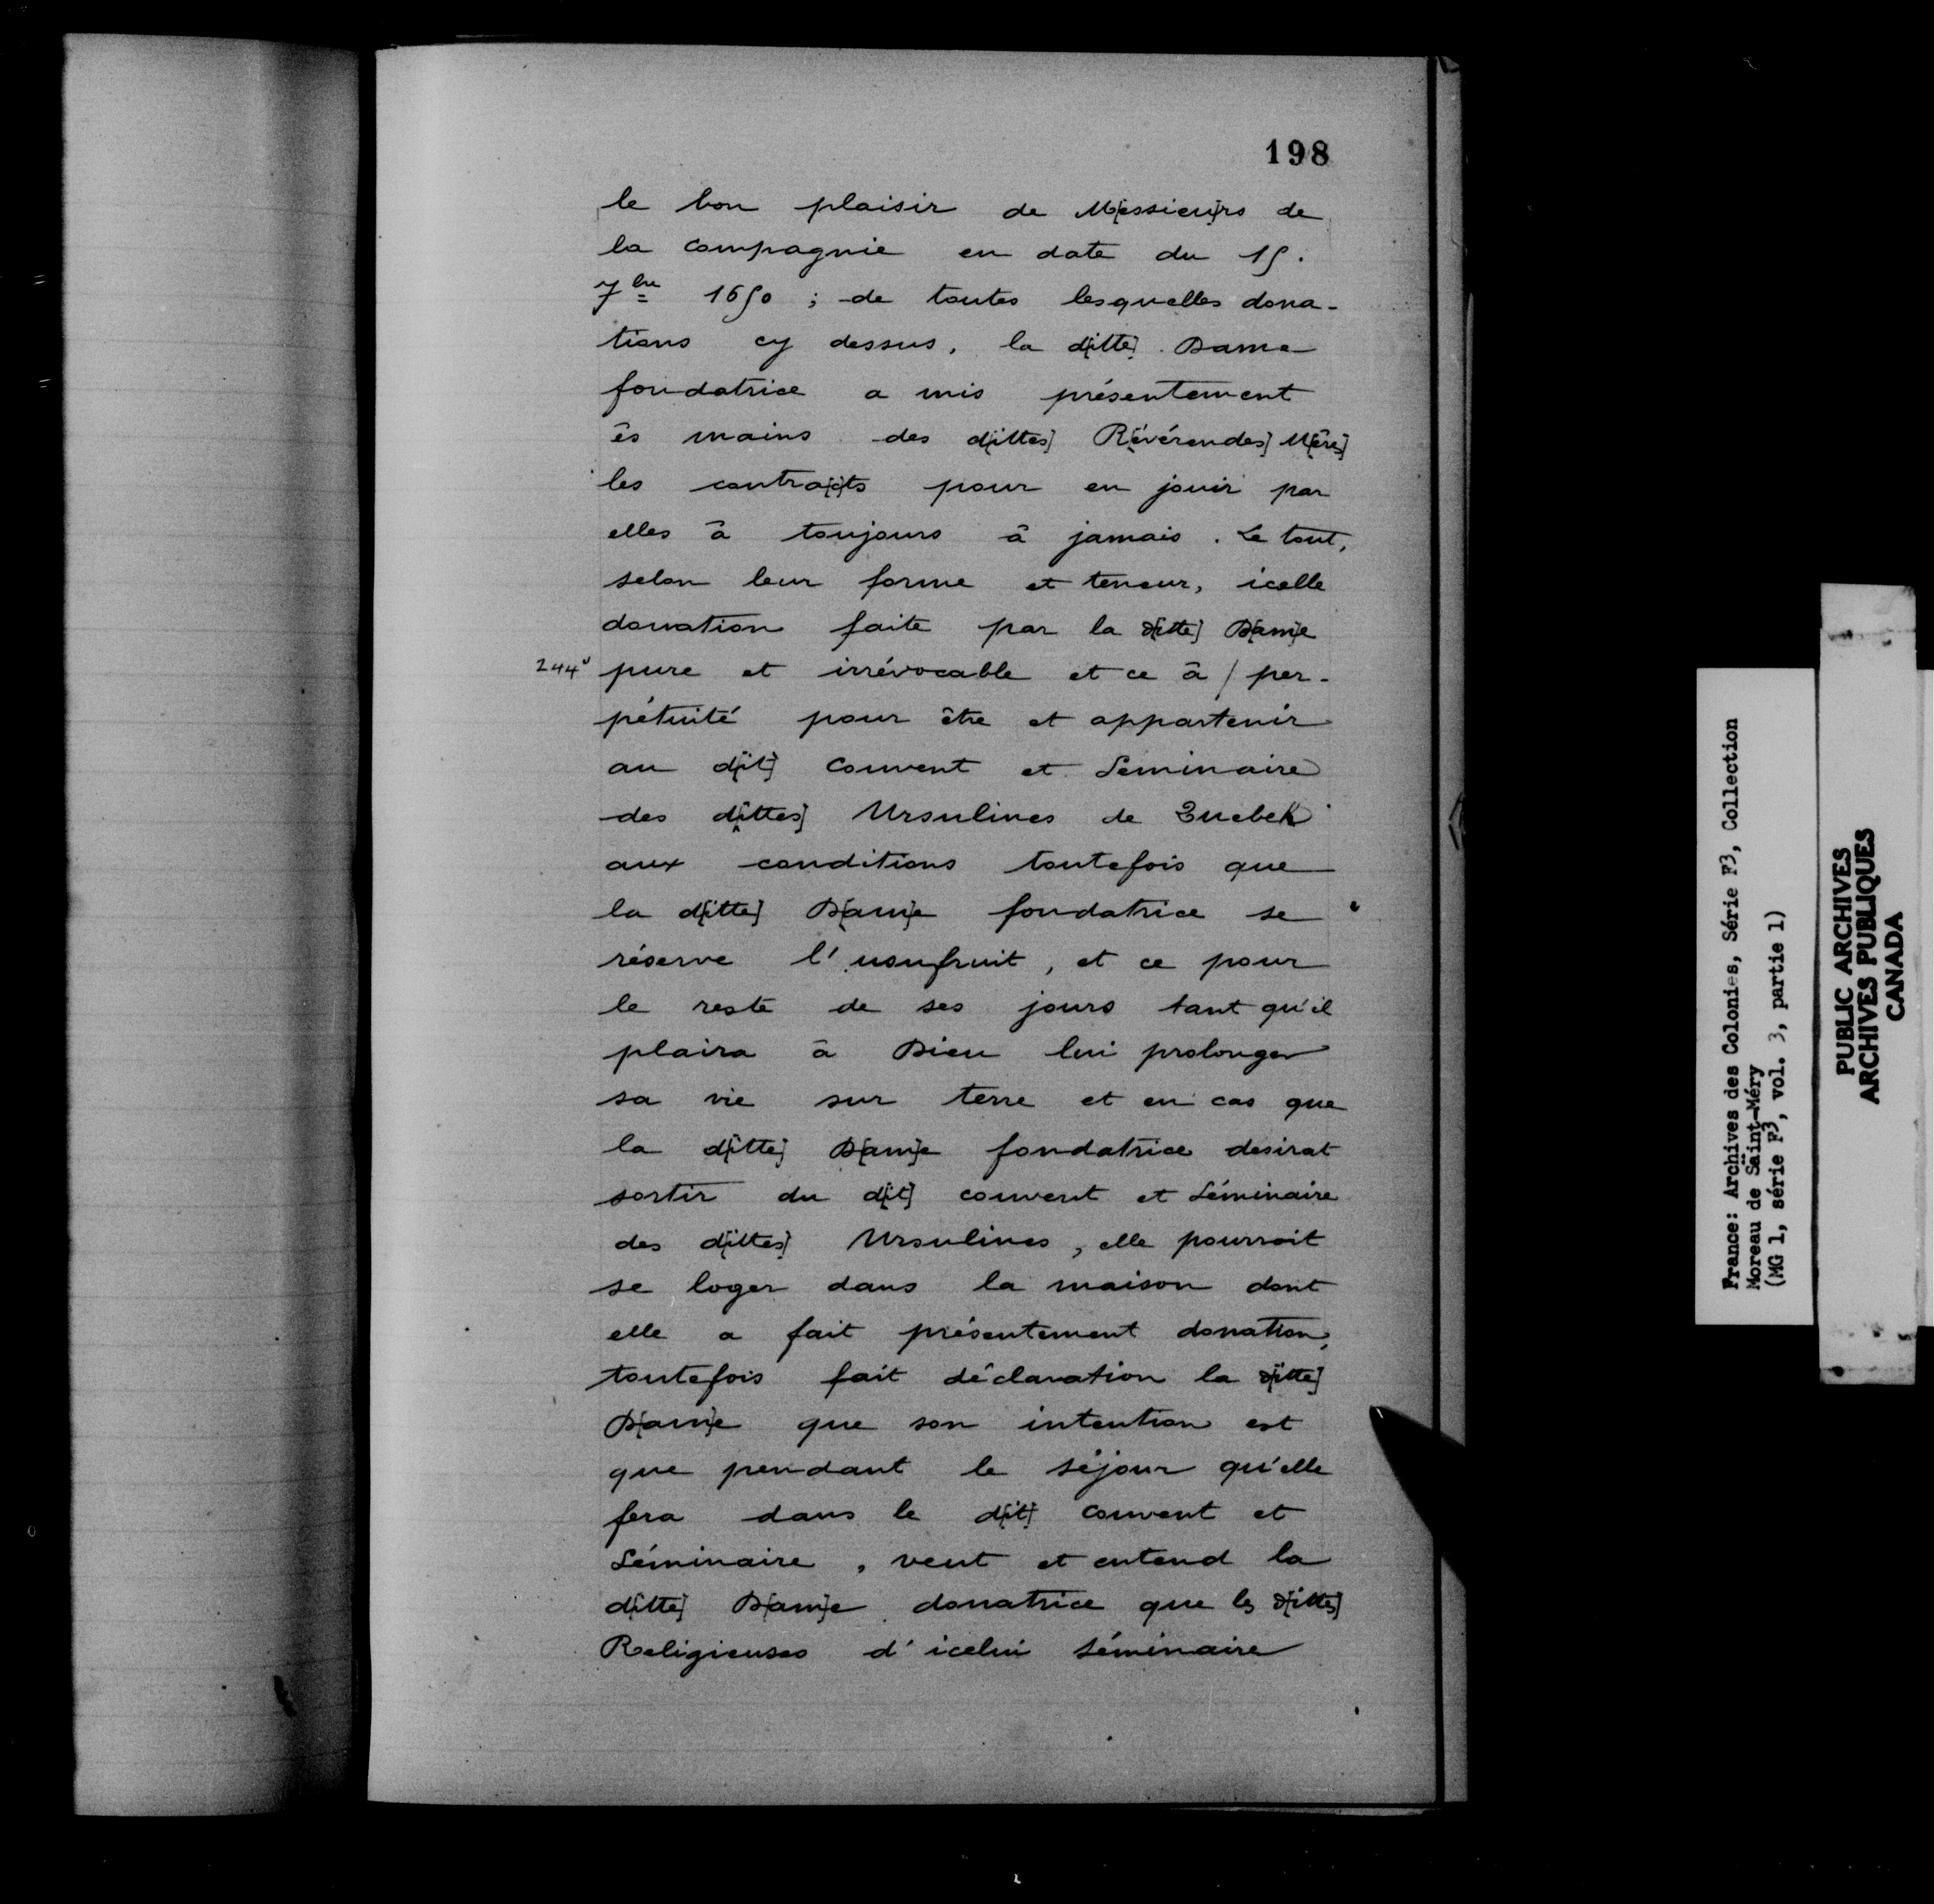 198
le bon plaisir de M[essieu]rs de
la Compagnie en date du 15.
7bre 1650 ; de toutes lesquelles dona-
tions cy dessus, la d[itte] Dame
fondatrice a mis présentement
ès mains des d[ittes] R[évérendes] M[ères]
les contra[c]ts pour en jouir par
elles à toujours à jamais. Le tout,
selon leur forme et teneur, icelle
donation faite par la d[itte] D[am]e
244v pure et irrévocable et ce à / per-
pétuité pour être et appartenir
au d[it] Couvent et Seminaire
des d[ittes] Ursulines de Quebek
aux conditions toutefois que
la d[itte] D[am]e fondatrice se
réserve l'usufruit, et ce pour
le reste de ses jours tant qu'il
plaira à Dieu lui prolonger
sa vie sur terre et en cas que
la d[itte] D[am]e fondatrice desirat
sortir du d[it] couvent et Séminaire
des d[ittes] Ursulines, elle pourroit
se loger dans la maison dont
elle a fait présentement donation,
toutefois fait déclaration la d[itte]
D[am]e que son intention est
que pendant le séjour qu'elle
fera dans le d[it] Couvent et
Séminaire, veut et entend la
d[itte] D[am]e donatrice que les d[ittes]
Religieuses d'icelui séminaire
France: Archives des Colonies, Série F3, Collection
Moreau de Saint-Méry
(MG 1, série F3, vol. 3, partie 1)
PUBLIC ARCHIVES
ARCHIVES PUBLIQUES
CANADA